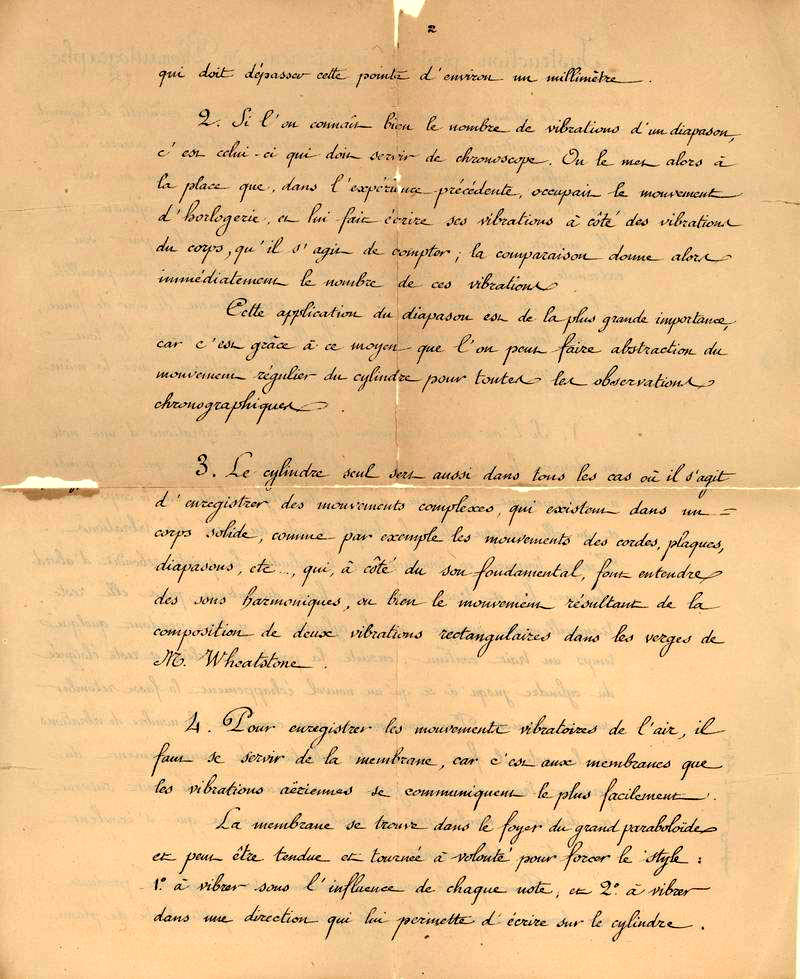 2
qui doit dépasser cette pointe d'environ un millimètre.
2. Si l'on connait bien le nombre de vibrations d'un diapason,
c'est celui-ci qui doit servir de chronoscope. On le met alors à
la place que, dans l'expérience précédente, occupait le mouvement
d'horlogerie, et lui fait écrire ses vibrations à côté des vibrations
du corps, qu'il s'agit de compter; la comparaison donne alors
immédiatement le nombre de ces vibrations
Cette application du diapason est de la plus grande importance,
car c'est grâce à ce moyen que l'on peut faire abstraction du
mouvement régulier du cylindre pour toutes les observations
chronographiques.
3. Le cylindre seul sert aussi dans tous les cas où il s'agit
d'enregistrer des mouvements complexes, qui existent dans un =
corps solide, comme par exemple les mouvements des cordes, plaques,
diapasons, etc..., qui, à côté du son fondamental, font entendre
des sons harmoniques, ou bien le mouvement résultant de la
composition de deux vibrations rectangulaires dans les verges de
M. Wheatstone.
4. Pour enregistrer les mouvements vibratoires de l'air, il
faut se servir de la membrane, car c'est aux membranes que
les vibrations aëriennes se communiquent le plus facilement.
La membrane se trouve dans le foyer du grand paraboloïde
et peut être tendue et tournée à volonté pour forcer le style:
1º à vibrer sous l'influence de chaque note, et 2º à vibrer
dans une direction qui lui permette d'écrire sur le cylindre.